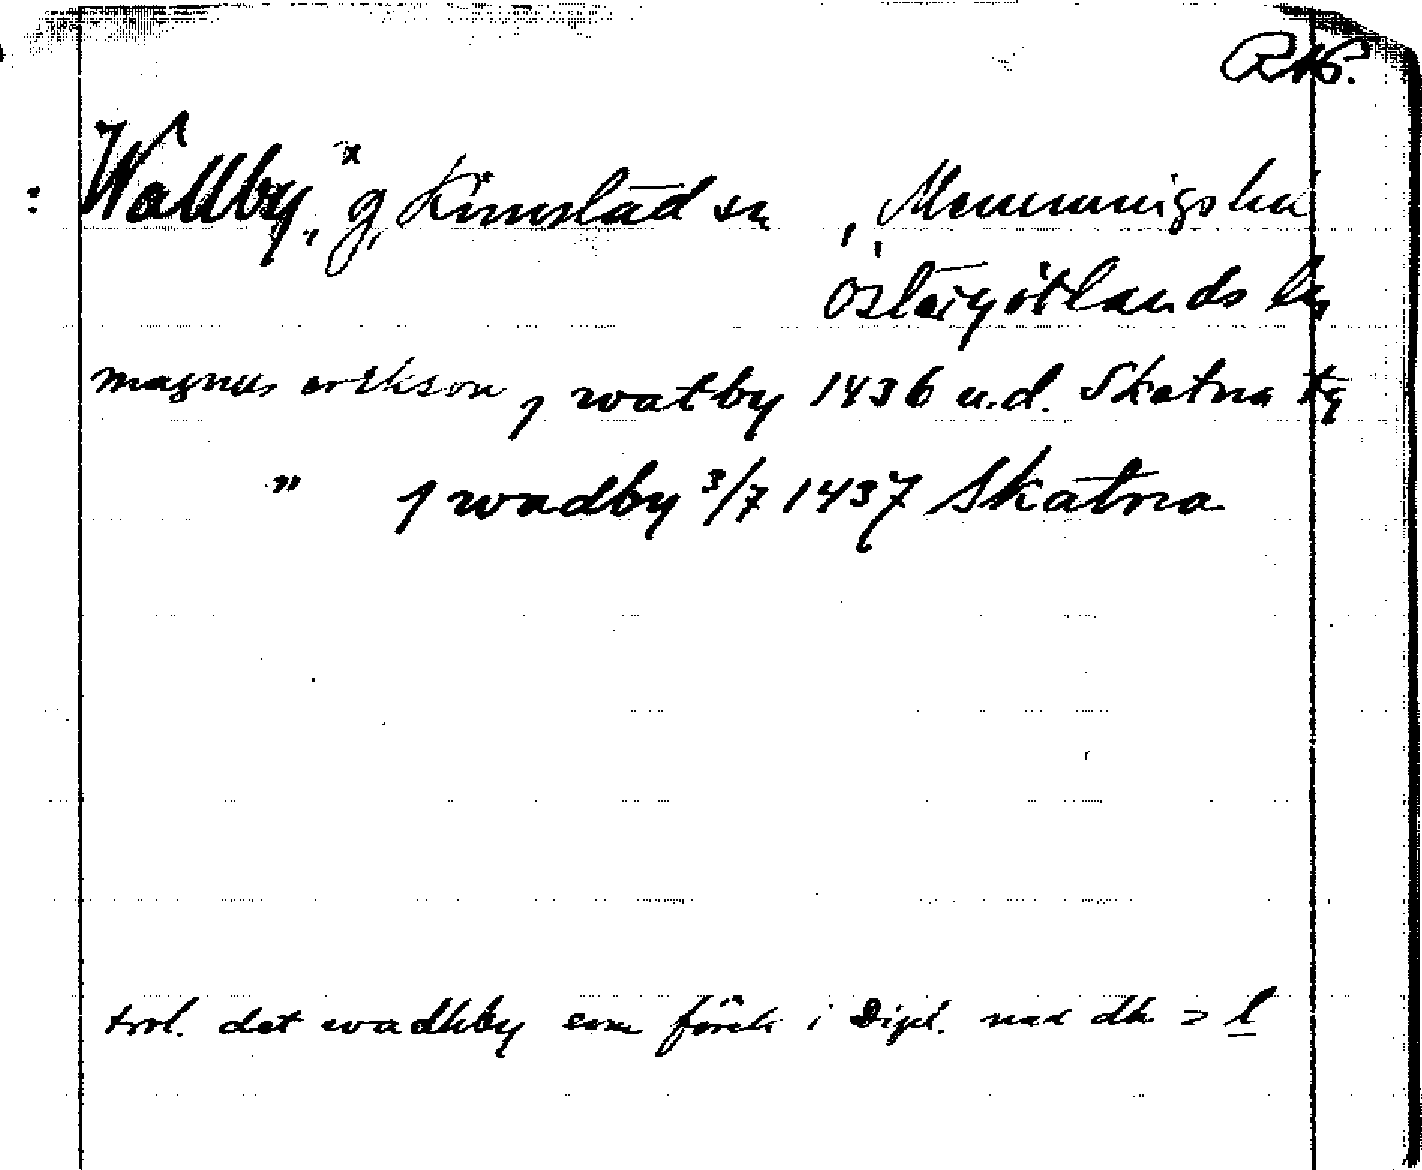 : Wallby, g, Kimstad sn, Memmingshd
Östergötlands ln
magnus erikson j watby 1436 u.d. Skatna kg
" j wadby 3/7 1437 Skatna
trol. det wadhby som förek i Dipl. med dh = l